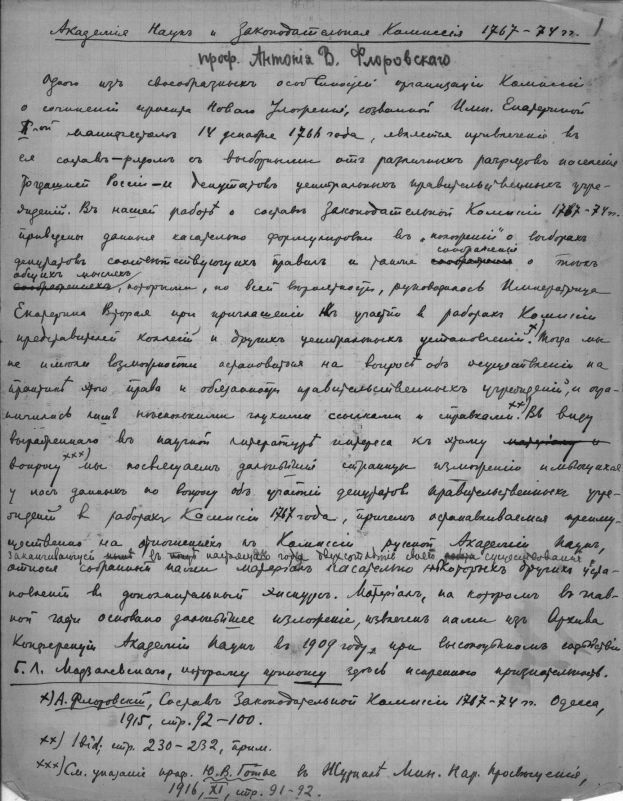 1
Академія Наукъ и Законодательная Комиссія 1767-74 гг.
проф. Антонія В. Флоровскаго
Одною изъ своеобразныхъ особенностей организаціи Комиссіи
о сочиненіи проекта Новаго Уложенія, созванной Имп. Екатериной
II-ой манифестомъ 14 декабря 1766 года, является привлеченіе въ
ея составъ - рядомъ съ выборными отъ различныхъ разрядовъ населенія
тогдашней Россіи - и депутатовъ центральныхъ правительственныхъ учре-
жденій. Въ нашей работѣ о составѣ Законодательной Комиссіи 1767-74 гг.
приведены данныя касательно формулировки въ „положеніи" о выборахъ
депутатовъ соотвѣтствующихъ правилъ и также соображенія о тѣхъ
общихъ мысляхъ, которыми, по всей вѣроятности, руководилась Императрица
Екатерина Вторая при приглашеніи къ участію въ работахъ Комиссіи
представителей коллегій и другихъ центральныхъ установленій.х) Тогда мы
не имѣли возможности остановиться на вопросѣ объ осуществленіи на
практикѣ этого права и обязанности правительственныхъ учрежденій, и огра-
ничились лишь нѣсколькими глухими ссылками и справками.хх) Въ виду
выраженнаго въ научной литературѣ интереса къ этому
вопросу ххх) мы посвящаемъ дальнѣйшія страницы изложенію имѣющихся
у насъ данныхъ по вопросу объ участіи депутатовъ правительственныхъ учре-
жденій въ работахъ Комиссіи 1767 года, причемъ останавливаемся преиму-
щественно на отношеніяхъ къ Комиссіи русской Академіи Наукъ,
заканчивающей въ настоящемъ году двухсотлѣтіе своего существованія
относя собранный нами матеріалъ касательно нѣкоторыхъ другихъ уста-
новленій въ дополнительный экскурсъ. Матеріалъ, на которомъ въ глав-
ной части основано дальнѣйшее изложеніе, извлеченъ нами изъ Архива
Конференціи Академіи Наукъ въ 1909 году, при
Б. Л. Модзалевскаго, которому приношу здѣсь искреннюю признательность.
х) А. Флоровскій, Составъ Законодательной Комиссіи 1767-74 гг. Одесса,
1915, стр. 92-100.
хх) Ibid, стр. 230-232, прим.
ххх) См. указаніе проф. Ю. В. Готье въ Журналѣ Мин. Нар. Просвѣщенія,
1916, XI, стр. 91-92.